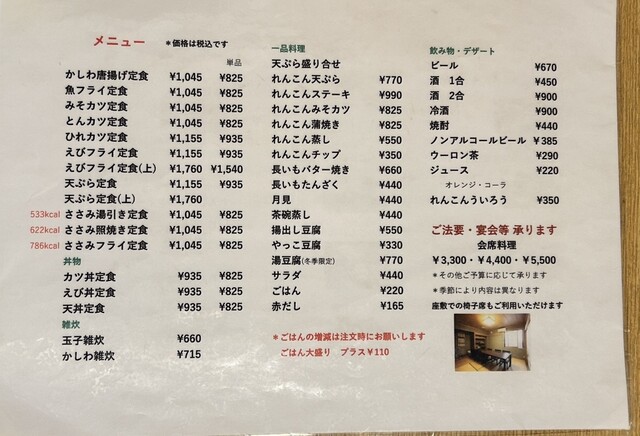 メニュー ＊価格は税込です
単品
かしわ唐揚げ定食 ¥1,045 ¥825
魚フライ定食 ¥1,045 ¥825
みそカツ定食 ¥1,045 ¥825
とんカツ定食 ¥1,045 ¥825
ひれカツ定食 ¥1,155 ¥935
えびフライ定食 ¥1,155 ¥935
えびフライ定食(上) ¥1,760 ¥1,540
天ぷら定食 ¥1,155 ¥935
天ぷら定食(上) ¥1,760
533kcal ささみ湯引き定食 ¥1,045 ¥825
622kcal ささみ照焼き定食 ¥1,045 ¥825
786kcal ささみフライ定食 ¥1,045 ¥825
丼物
カツ丼定食 ¥935 ¥825
えび丼定食 ¥935 ¥825
天丼定食 ¥935 ¥825
雑炊
玉子雑炊 ¥660
かしわ雑炊 ¥715
一品料理
天ぷら盛り合せ
れんこん天ぷら ¥770
れんこんステーキ ¥990
れんこんみそカツ ¥825
れんこん蒲焼き ¥825
れんこん蒸し ¥550
れんこんチップ ¥350
長いもバター焼き ¥660
長いもたんざく ¥440
月見 ¥440
茶碗蒸し ¥440
揚出し豆腐 ¥550
やっこ豆腐 ¥330
湯豆腐(冬季限定) ¥770
サラダ ¥440
ごはん ¥220
赤だし ¥165
＊ごはんの増減は注文時にお願いします
ごはん大盛り プラス¥110
飲み物・デザート
ビール ¥670
酒 1合 ¥450
酒 2合 ¥900
冷酒 ¥900
焼酎 ¥440
ノンアルコールビール ¥385
ウーロン茶 ¥290
ジュース ¥220
オレンジ・コーラ
れんこんういろう ¥350
ご法要・宴会等 承ります
会席料理
¥3,300・¥4,400・¥5,500
＊その他ご予算に応じて承ります
＊季節により内容は異なります
座敷での椅子席もご利用いただけます